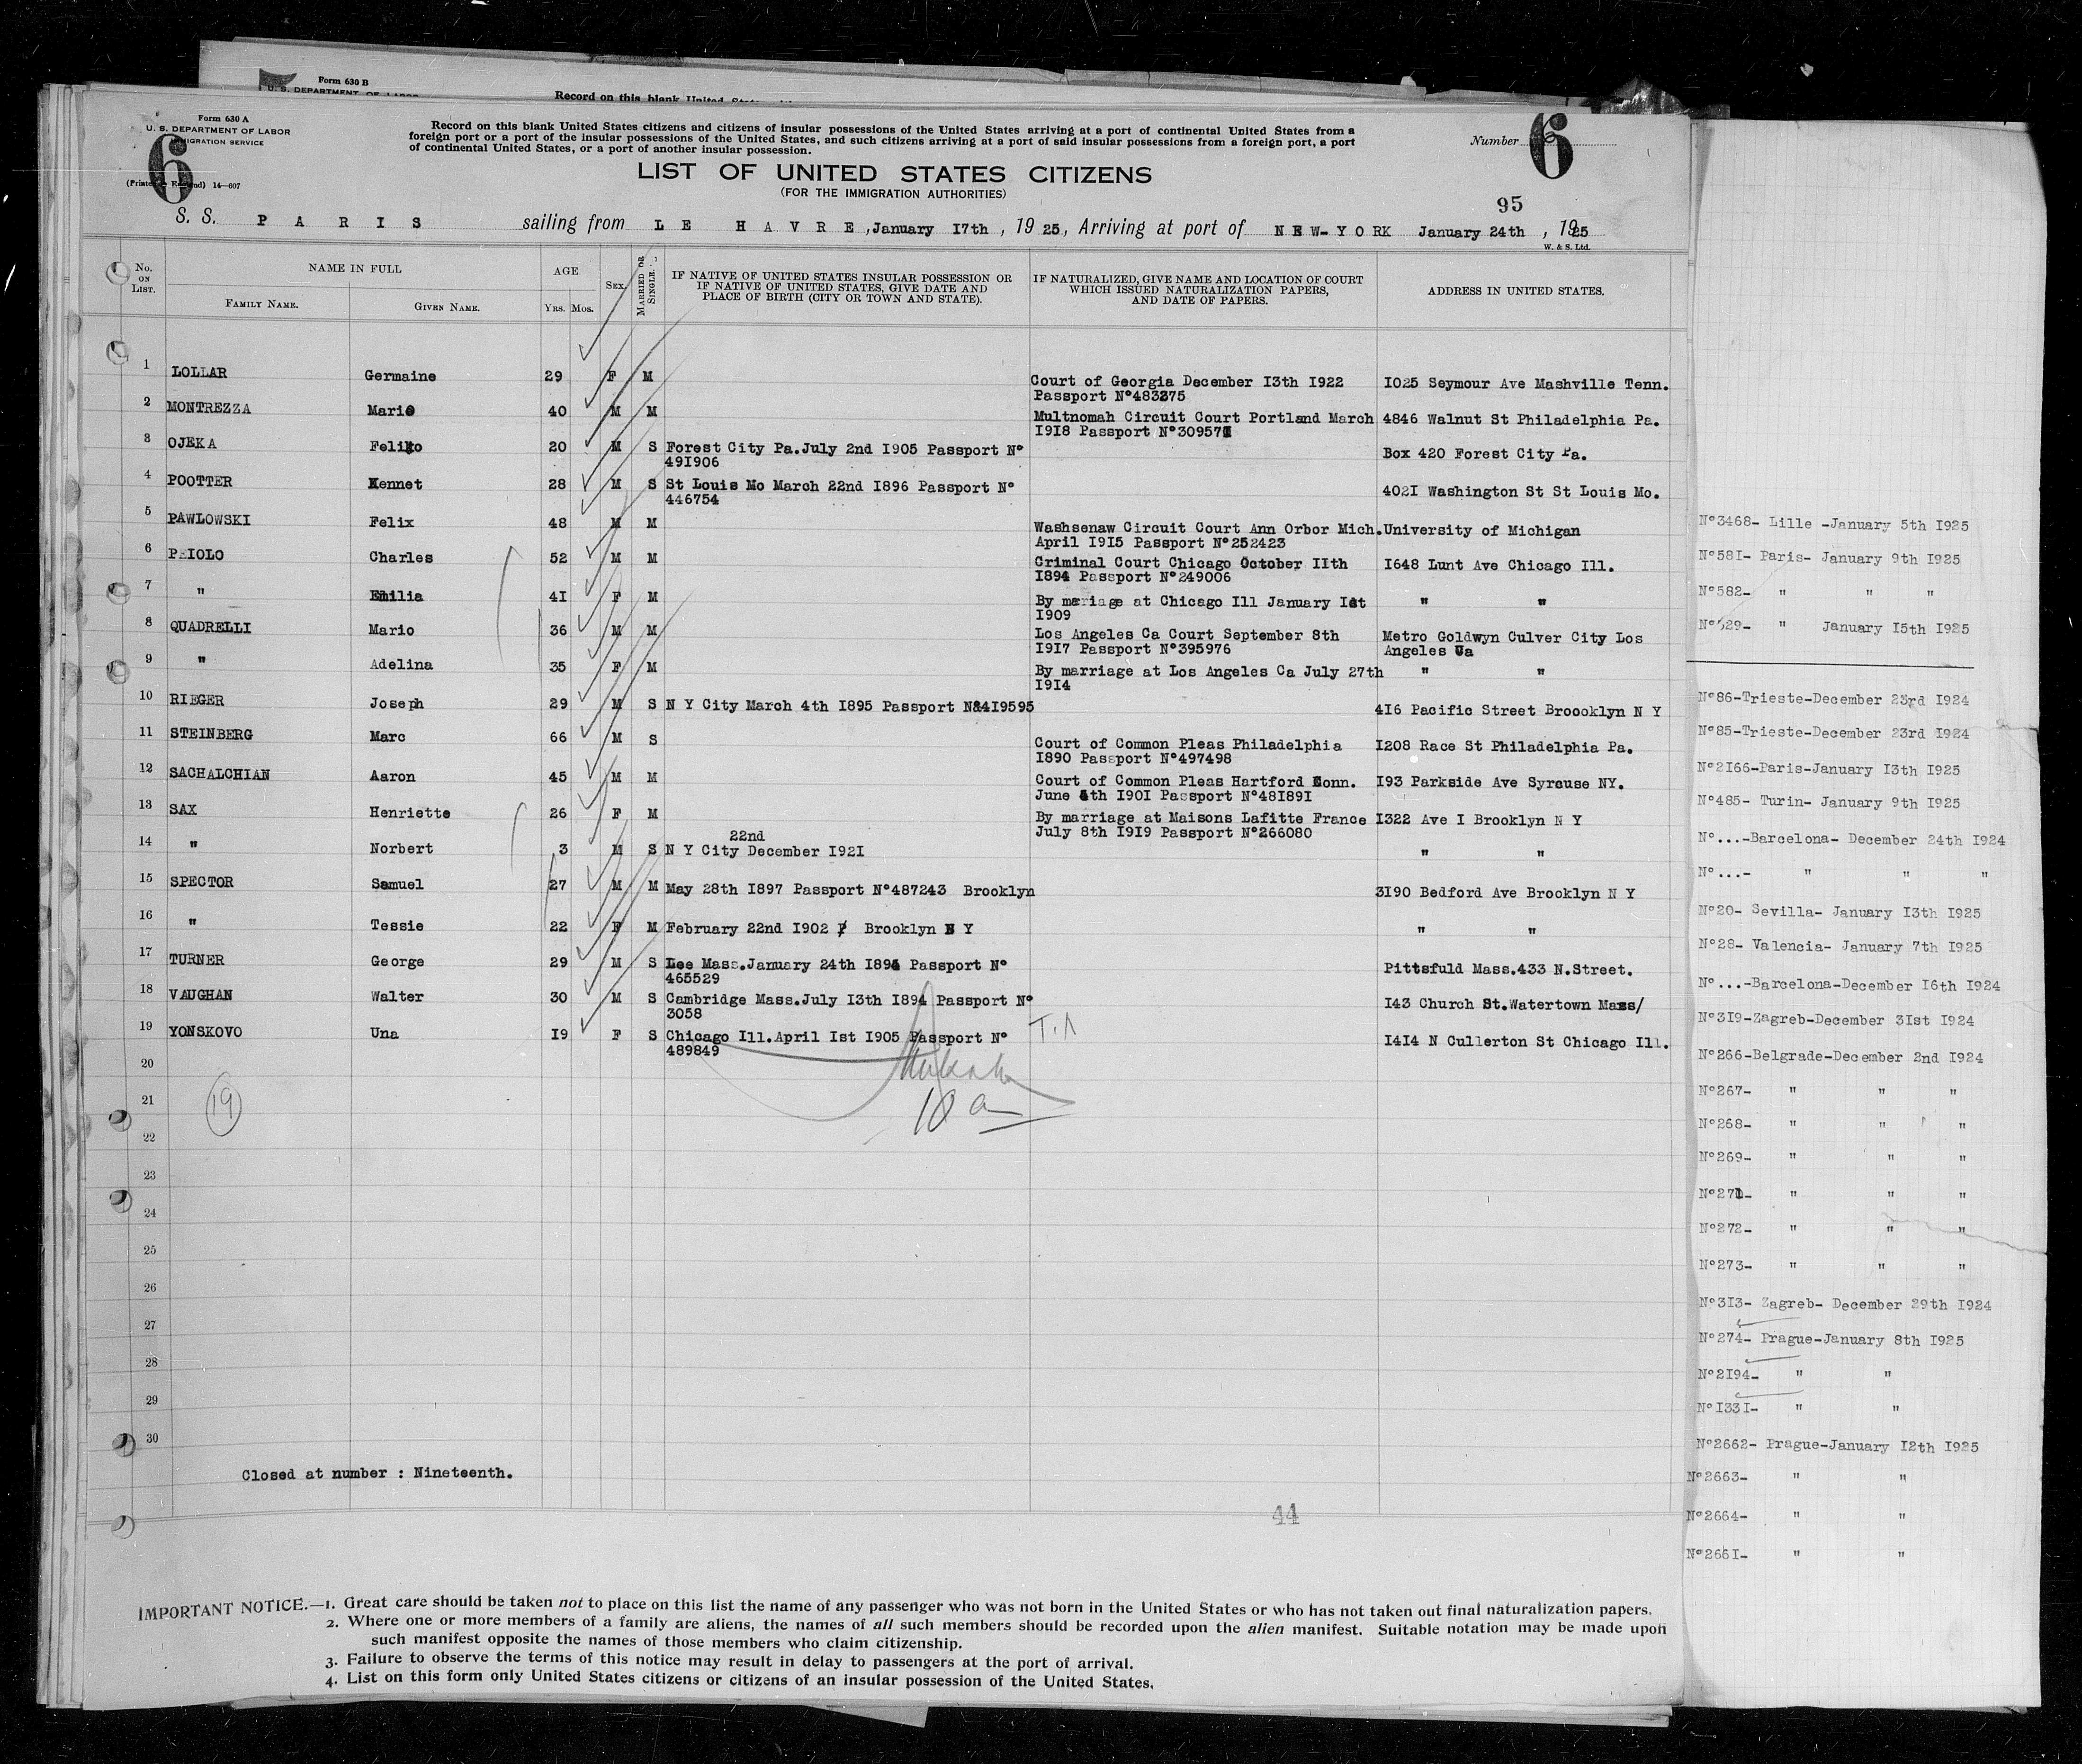 Form 630 B
U. S. DEPARTMENT OF LABOR
Record on this blank United
Form 630 A
U. S. DEPARTMENT OF LABOR
IMMIGRATION SERVICE
14—607
6
Record on this blank United States citizens and citizens of insular possessions of the United States arriving at a port of continental United States from a
foreign port or a port of the insular possessions of the United States, and such citizens arriving at a port of said insular possessions from a foreign port, a port
of continental United States, or a port of another insular possession.
Number 6
LIST OF UNITED STATES CITIZENS
(FOR THE IMMIGRATION AUTHORITIES)
95
S. S. P A R I S sailing from L E H A V R E, January I7th, 19 25, Arriving at port of N E W- Y O R K January 24th, 1925
W. & S. Ltd.
No. ON LIST.
NAME IN FULL
FAMILY NAME.
GIVEN NAME.
AGE
YRS. MOS.
SEX.
MARRIED OR SINGLE.
IF NATIVE OF UNITED STATES INSULAR POSSESSION OR
IF NATIVE OF UNITED STATES, GIVE DATE AND
PLACE OF BIRTH (CITY OR TOWN AND STATE).
IF NATURALIZED, GIVE NAME AND LOCATION OF COURT
WHICH ISSUED NATURALIZATION PAPERS,
AND DATE OF PAPERS.
ADDRESS IN UNITED STATES.
1 LOLLAR Germaine 29 F M Court of Georgia December I3th I922 I025 Seymour Ave Mashville Tenn.
Passport N°483375
2 MONTREZZA Mario 40 M M Multnomah Circuit Court Portland March 4846 Walnut St Philadelphia Pa.
I9I8 Passport N°30957
3 OJEKA 20 M S Forest City Pa.July 2nd I905 Passport N° Box 420 Forest City Pa.
49I906
4 POOTTER Kennet 28 M S St Louis Mo March 22nd I896 Passport N° 402I Washington St St Louis Mo.
446754
5 PAWLOWSKI Felix 48 M M Washsenaw Circuit Court Ann Orbor Mich. University of Michigan
April I9I5 Passport N°252423
6 PEIOLO Charles 52 M M Criminal Court Chicago October IIth I648 Lunt Ave Chicago Ill.
I894 Passport N°249006
7 " Emilia 4I F M By mariage at Chicago Ill January Ist " "
I909
8 QUADRELLI Mario 36 M M Los Angeles Ca Court September 8th Metro Goldwyn Culver City Los
I9I7 Passport N°395976 Angeles Ca
9 " Adelina 35 F M By marriage at Los Angeles Ca July 27th " "
I9I4
10 RIEGER Joseph 29 M S N Y City March 4th I895 Passport N°4I9595 4I6 Pacific Street Broooklyn N Y
11 STEINBERG Marc 66 M S Court of Common Pleas Philadelphia I208 Race St Philadelphia Pa.
I890 Passport N°497498
12 SACHALCHIAN Aaron 45 M M Court of Common Pleas Hartford Conn. I93 Parkside Ave Syrcuse NY.
June 4th I90I Passport N°48I89I
13 SAX Henriette 26 F M By marriage at Maisons Lafitte France I322 Ave I Brooklyn N Y
July 8th I9I9 Passport N°266080
22nd
14 " Norbert 3 M S N Y City December I92I " "
15 SPECTOR Samuel 27 M M May 28th I897 Passport N°487243 Brooklyn 3I90 Bedford Ave Brooklyn N Y
16 " Tessie 22 F M February 22nd I902 Brooklyn N Y " "
17 TURNER George 29 M S Lee Mass.January 24th I89 Passport N° Pittsfuld Mass.433 N.Street.
465529
18 VAUGHAN Walter 30 M S Cambridge Mass.July I3th I894 Passport N° I43 Church St.Watertown Mass/
3058
19 YONSKOVO Una I9 F S Chicago Ill.April Ist I905 Passport N° I4I4 N Cullerton St Chicago Ill.
489849
20
21
22
23
24
25
26
27
28
29
30
19
10 a
Closed at number : Nineteenth.
44
IMPORTANT NOTICE.—1. Great care should be taken not to place on this list the name of any passenger who was not born in the United States or who has not taken out final naturalization papers.
2. Where one or more members of a family are aliens, the names of all such members should be recorded upon the alien manifest. Suitable notation may be made upon
such manifest opposite the names of those members who claim citizenship.
3. Failure to observe the terms of this notice may result in delay to passengers at the port of arrival.
4. List on this form only United States citizens or citizens of an insular possession of the United States.
N°3468- Lille -January 5th I925
N°58I- Paris- January 9th I925
N°582- " " "
N°529- " January I5th I925
N°86-Trieste-December 23rd I924
N°85-Trieste-December 23rd I924
N°2I66-Paris-January I3th I925
N°485- Turin- January 9th I925
N°...-Barcelona- December 24th I924
N°...- " " "
N°20- Sevilla- January I3th I925
N°28- Valencia- January 7th I925
N°...-Barcelona-December I6th I924
N°3I9-Zagreb-December 3Ist I924
N°266-Belgrade-December 2nd I924
N°267- " " "
N°268- " " "
N°269- " " "
N°271- " " "
N°272- " " "
N°273- " " "
N°3I3- Zagreb- December 29th I924
N°274- Prague-January 8th I925
N°2I94- " "
N°I33I- " "
N°2662- Prague-January I2th I925
N°2663- " "
N°2664- " "
N°266I- " "